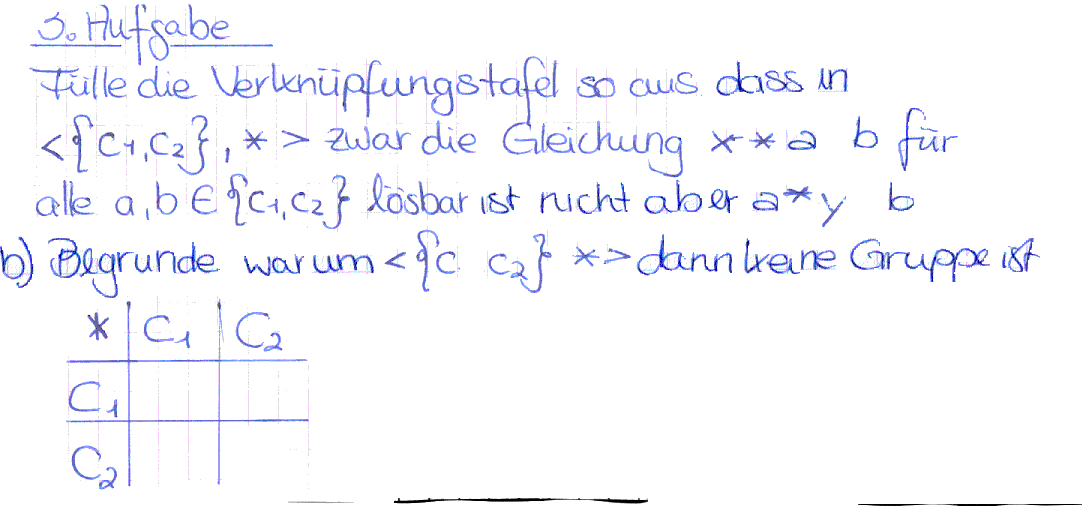 3. Aufgabe
Fülle die Verknüpfungstafel so aus dass in
<{C1,C2},*> zwar die Gleichung x*a b für
alle a,b ∈ {C1,C2} lösbar ist nicht aber a*y b
b) Begrunde warum <{C C2} *> dann keine Gruppe ist
* C1 C2
C1
C2